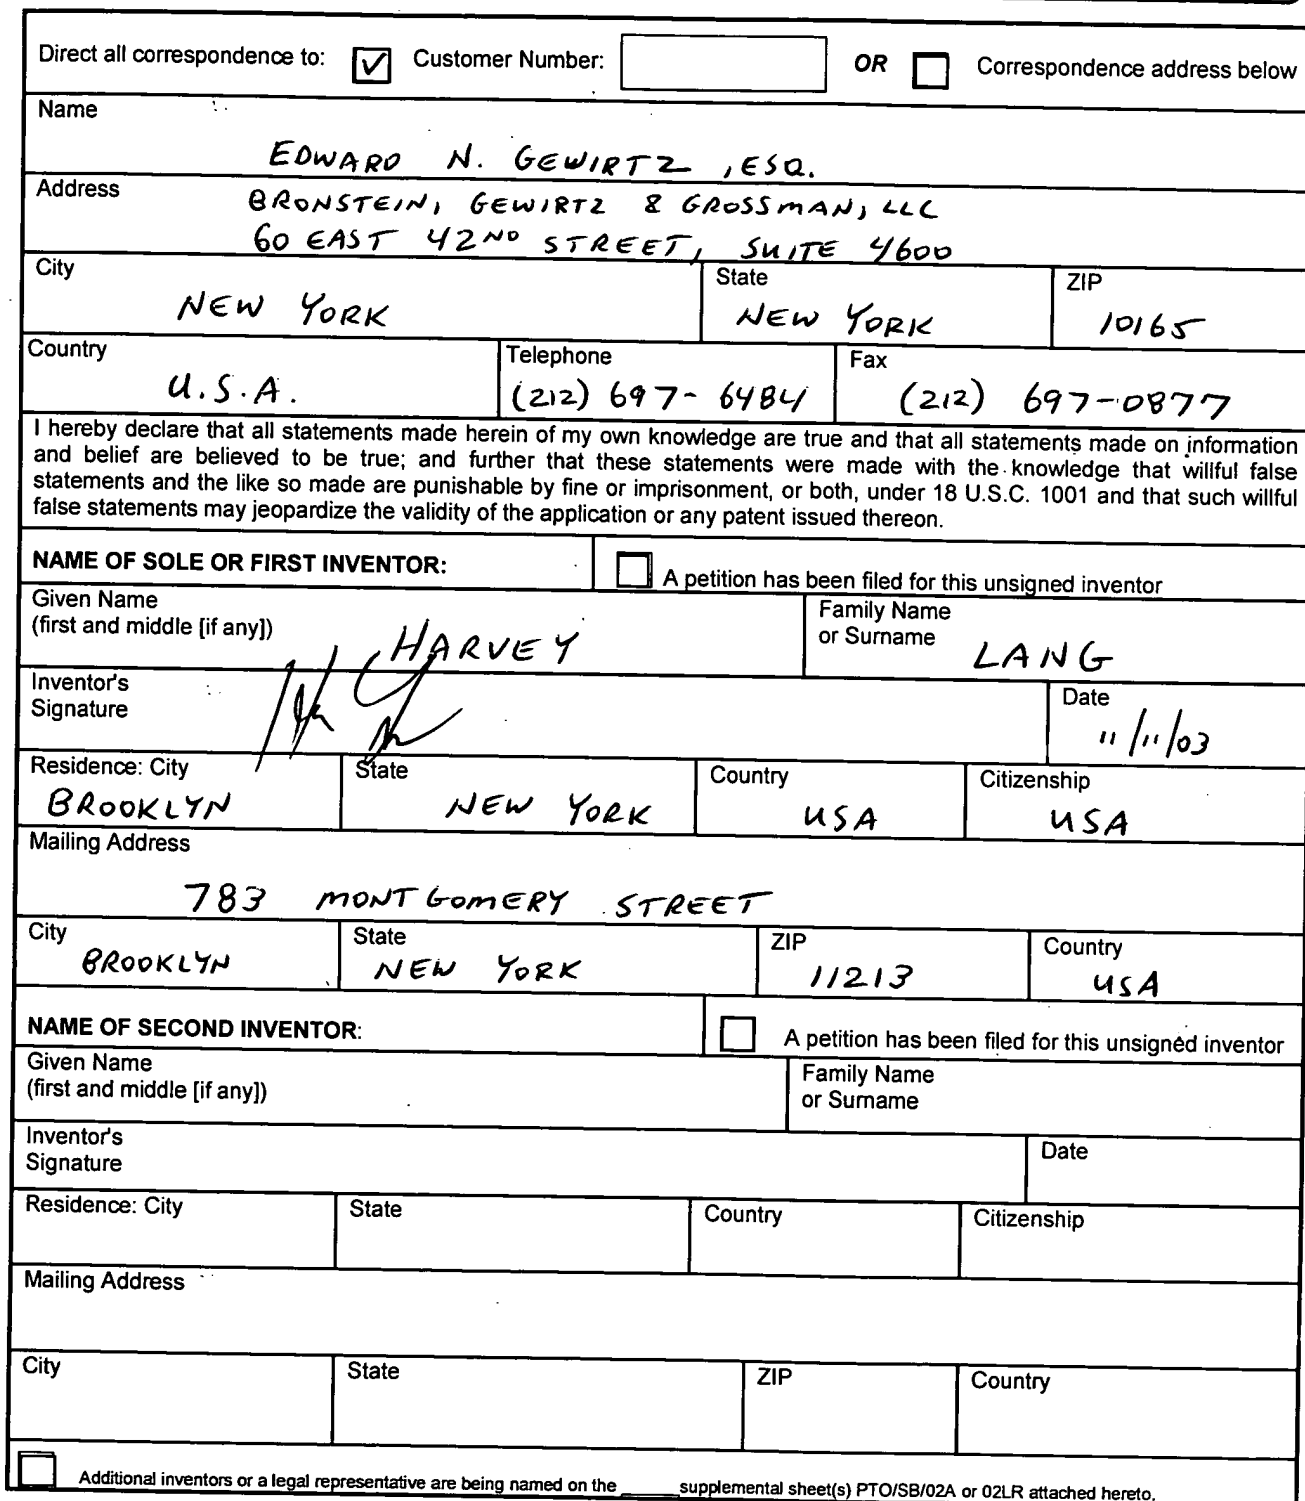 Direct all correspondence to: Customer Number: OR Correspondence address below
Name
EDWARD N. GEWIRTZ, ESQ.
Address
BRONSTEIN, GEWIRTZ & GROSSMAN, LLC
60 EAST 42ND STREET, SUITE 4600
City State ZIP
NEW YORK NEW YORK 10165
Country Telephone Fax
U.S.A. (212) 697-6484 (212) 697-0877
I hereby declare that all statements made herein of my own knowledge are true and that all statements made on information
and belief are believed to be true; and further that these statements were made with the knowledge that willful false
statements and the like so made are punishable by fine or imprisonment, or both, under 18 U.S.C. 1001 and that such willful
false statements may jeopardize the validity of the application or any patent issued thereon.
NAME OF SOLE OR FIRST INVENTOR: A petition has been filed for this unsigned inventor
Given Name Family Name
(first and middle [if any]) or Surname
HARVEY LANG
Inventor's Date
Signature
11/11/03
Residence: City State Country Citizenship
BROOKLYN NEW YORK USA USA
Mailing Address
783 MONTGOMERY STREET
City State ZIP Country
BROOKLYN NEW YORK 11213 USA
NAME OF SECOND INVENTOR: A petition has been filed for this unsigned inventor
Given Name Family Name
(first and middle [if any]) or Surname
Inventor's Date
Signature
Residence: City State Country Citizenship
Mailing Address
City State ZIP Country
Additional inventors or a legal representative are being named on the _____ supplemental sheet(s) PTO/SB/02A or 02LR attached hereto.